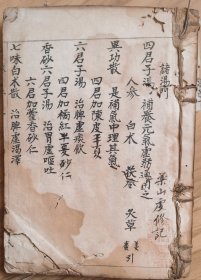 諸湯門
葉山房修記
四君子湯 補養元氣虛弱湯門之
人參 白术 茯苓 炙草 姜棗引
異功散 是補氣中理其氣
四君加陳皮等分
六君子湯 治脾虛痰飲
四君加橘紅半夏砂仁
香砂六君子湯 治胃虛嘔吐
六君加藿香砂仁
七味白术散 治脾虛渴瀉